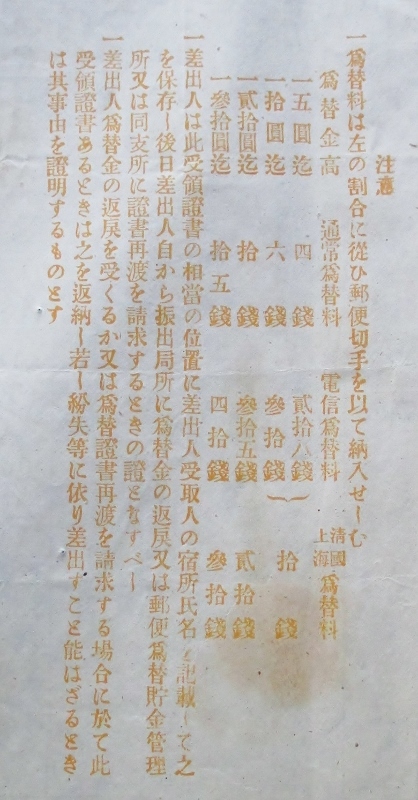 注意
一爲替料は左の割合に從ひ郵便切手を以て納入せしむ
爲替金高 通常爲替料 電信爲替料 淸國上海爲替料
一五圓迄 四錢 貳拾八錢
一拾圓迄 六錢 參拾錢 拾錢
一貳拾圓迄 拾錢 參拾五錢 貳拾錢
一參拾圓迄 拾五錢 四拾錢 參拾錢
一差出人は此受領證書の相當の位置に差出人受取人の宿所氏名を記載して之
を保存し後日差出人自から振出局所に爲替金の返戾又は郵便爲替貯金管理
所又は同支所に證書再渡を請求するときの證となすべし
一差出人爲替金の返戾を受くるか又は爲替證書再渡を請求する場合に於て此
受領證書あるときは之を返納し若し紛失等に依り差出すこと能はざるとき
は其事由を證明するものとす